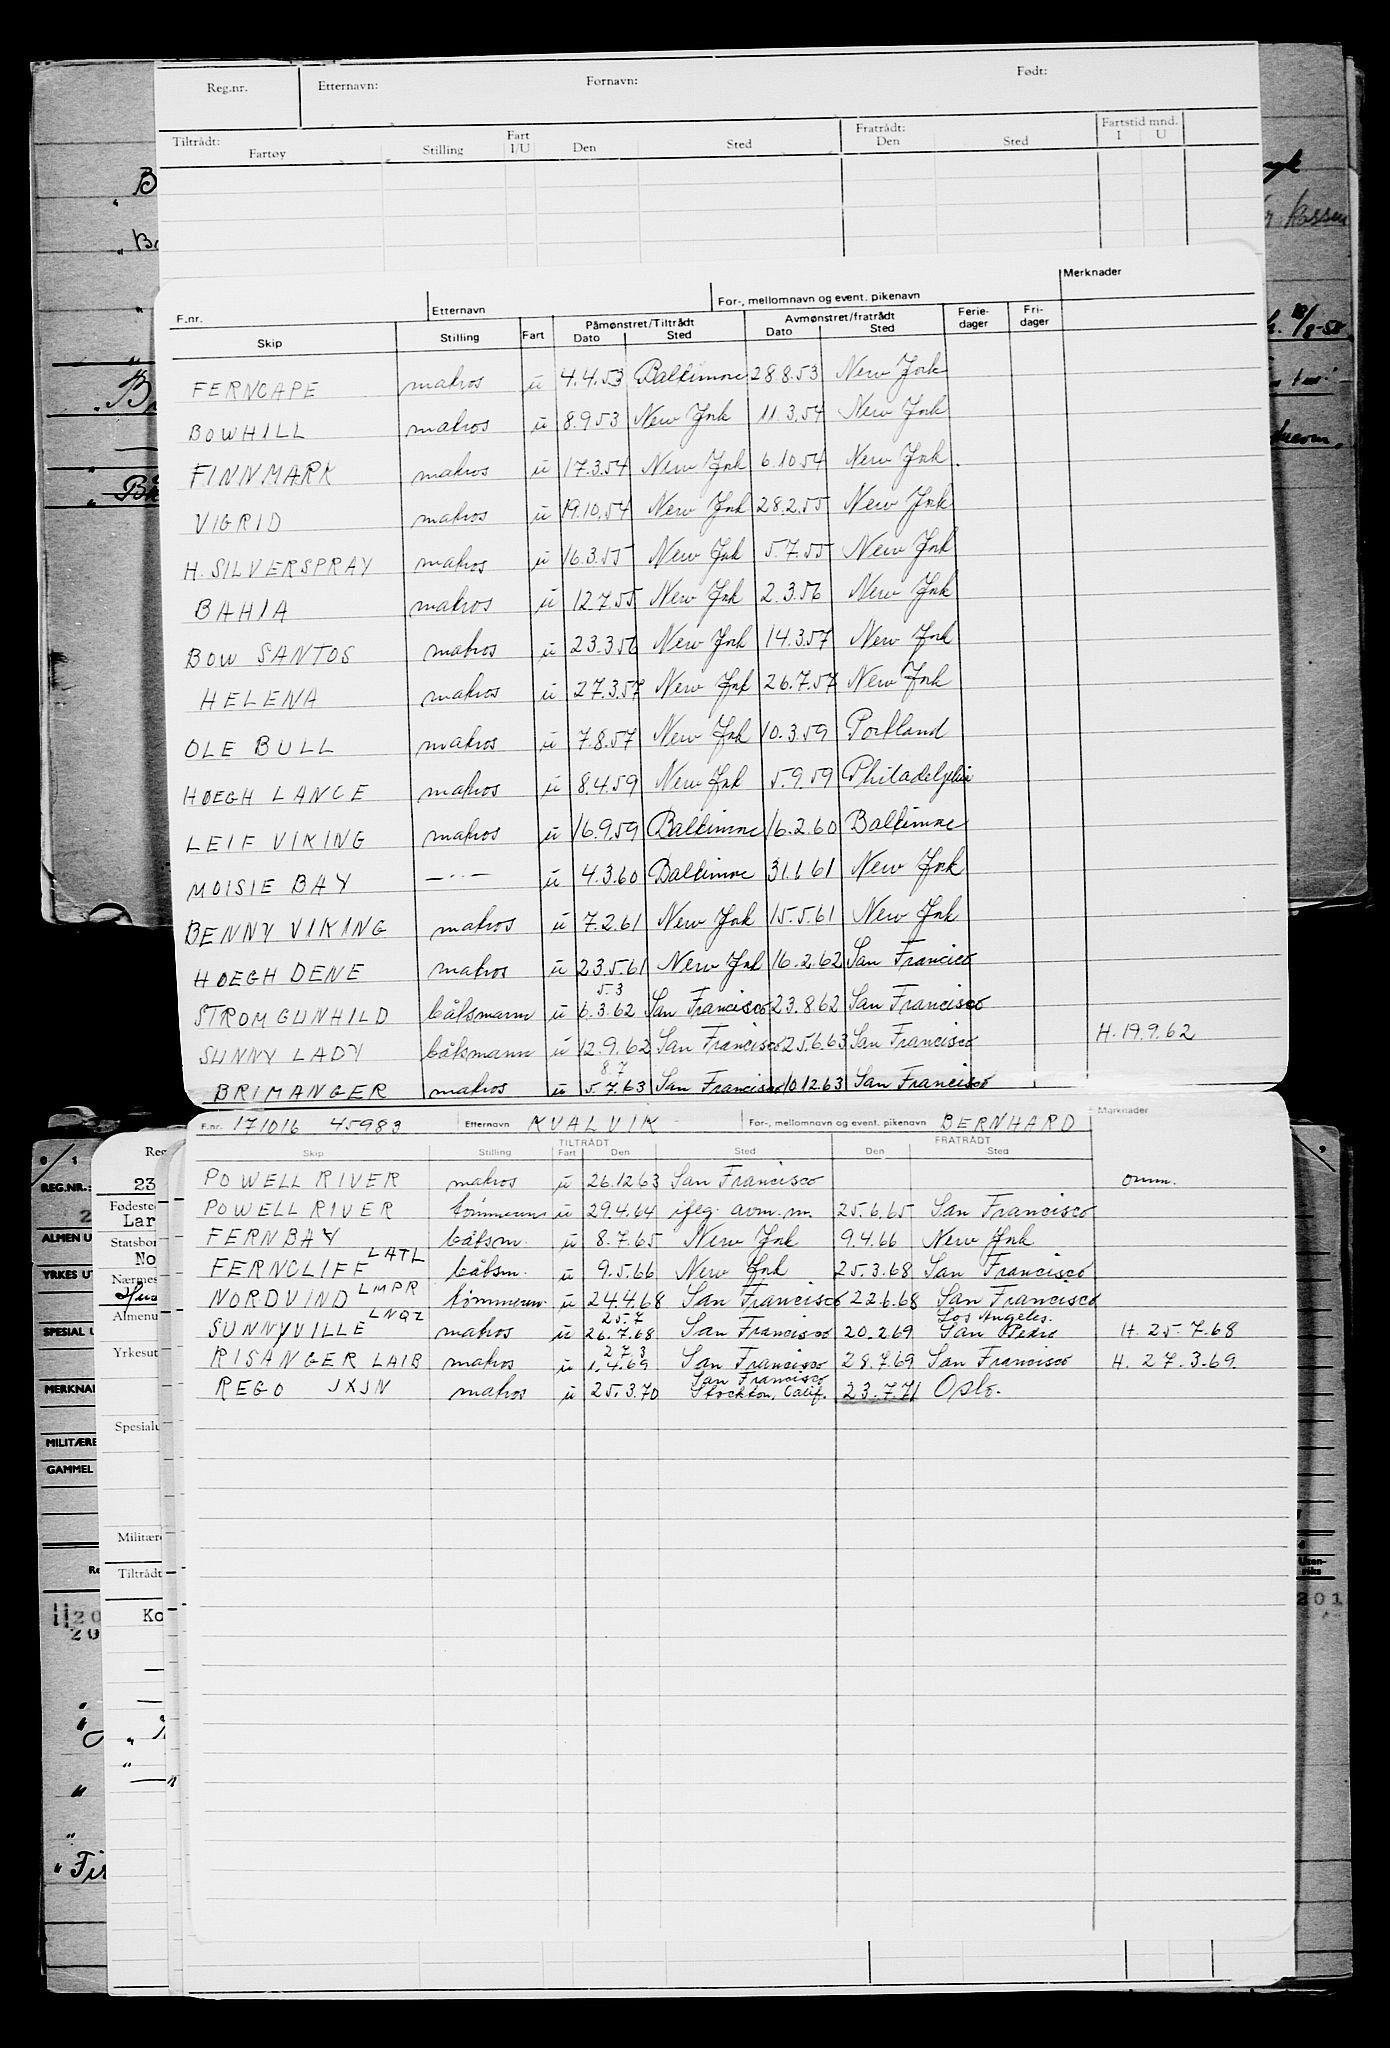 Reg.nr. Etternavn: Fornavn: Født:
Tiltrådt: Fratrådt: Fartstid mnd.
Fartøy Stilling Fart I/U Den Sted Den Sted I U
F.nr. Etternavn For-, mellomnavn og event. pikenavn Merknader
Skip Stilling Fart Påmønstret/Tiltrådt Dato Sted Avmønstret/fratrådt Dato Sted Ferie-dager Fri-dager
FERNCAPE matros u 4.4.53 Baltimore 28.8.53 New York
BOWHILL matros u 8.9.53 New York 11.3.54 New York
FINNMARK matros u 17.3.54 New York 6.10.54 New York
VIGRID matros u 19.10.54 New York 28.2.55 New York
H. SILVERSPRAY matros u 16.3.55 New York 5.7.55 New York
BAHIA matros u 12.7.55 New York 2.3.56 New York
BOW SANTOS matros u 23.3.56 New York 14.3.57 New York
HELENA matros u 27.3.57 New York 26.7.57 New York
OLE BULL matros u 7.8.57 New York 10.3.59 Portland
HØEGH LANCE matros u 8.4.59 New York 5.9.59 Philadelphia
LEIF VIKING matros u 16.9.59 Baltimore 16.2.60 Baltimore
MOISIE BAY —··— u 4.3.60 Baltimore 31.1.61 New York
BENNY VIKING matros u 7.2.61 New York 15.5.61 New York
HØEGH DENE matros u 23.5.61 New York 16.2.62 San Francisco
5.3
STROM GUNHILD båtsmann u 6.3.62 San Francisco 23.8.62 San Francisco
SUNNY LADY båtsmann u 12.9.62 San Francisco 25.6.63 San Francisco H. 19.9.62
8.7
BRIMANGER matros u 5.7.63 San Francisco 10.12.63 San Francisco
F.nr. 171016 45983 Etternavn KVALVIK For-, mellomnavn og event. pikenavn BERNHARD Merknader
TILTRÅDT FRATRÅDT
Skip Stilling Fart Den Sted Den Sted
POWELL RIVER matros u 26.12.63 San Francisco omm.
POWELL RIVER tømmerm u 29.4.64 ifeg. avm. m. 25.6.65 San Francisco
FERNBAY båtsm. u 8.7.65 New York 9.4.66 New York
FERNCLIFF LATL båtsm. u 9.5.66 New York 25.3.68 San Francisco
NORDVIND LMPR tømmerm. u 24.4.68 San Francisco 22.6.68 San Francisco
25.7 Los Angeles.
SUNNYVILLE LNQZ matros u 26.7.68 San Francisco 20.2.69 San Pedro H. 25.7.68
27.3
RISANGER LAIB matros u 1.4.69 San Francisco 28.7.69 San Francisco H. 27.3.69
San Francisco
REGO JXJN matros u 25.3.70 Stockton, Calif. 23.7.71 Oslo.
REG.NR.:
23
Lar
ALMEN U
No
YRKES UT
SPECIAL U
MERKNA
MILITÆRE
GAMMEL
Tiltrådt
Ko
201